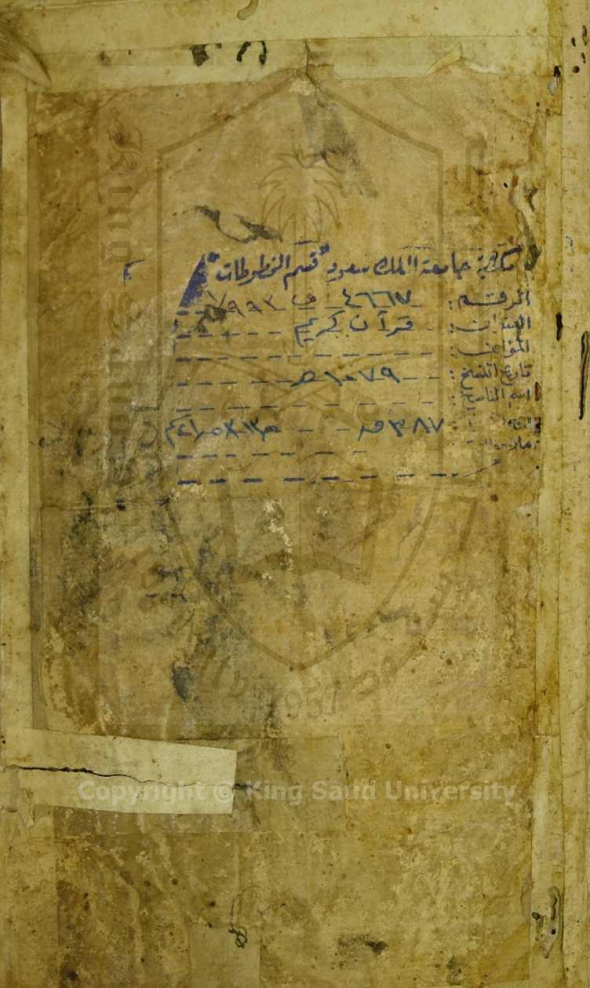 مكتبة جامعة الملك سعود "قسم المخطوطات"
الرقم: ٤٦٦٧ ف ٧٩٩٣
العنوان: قرآن كريم
المؤلف:
تاريخ النسخ: ١٠٧٩هـ
اسم الناسخ:
٣٨٧ ق
Copyright © King Saud University
1957